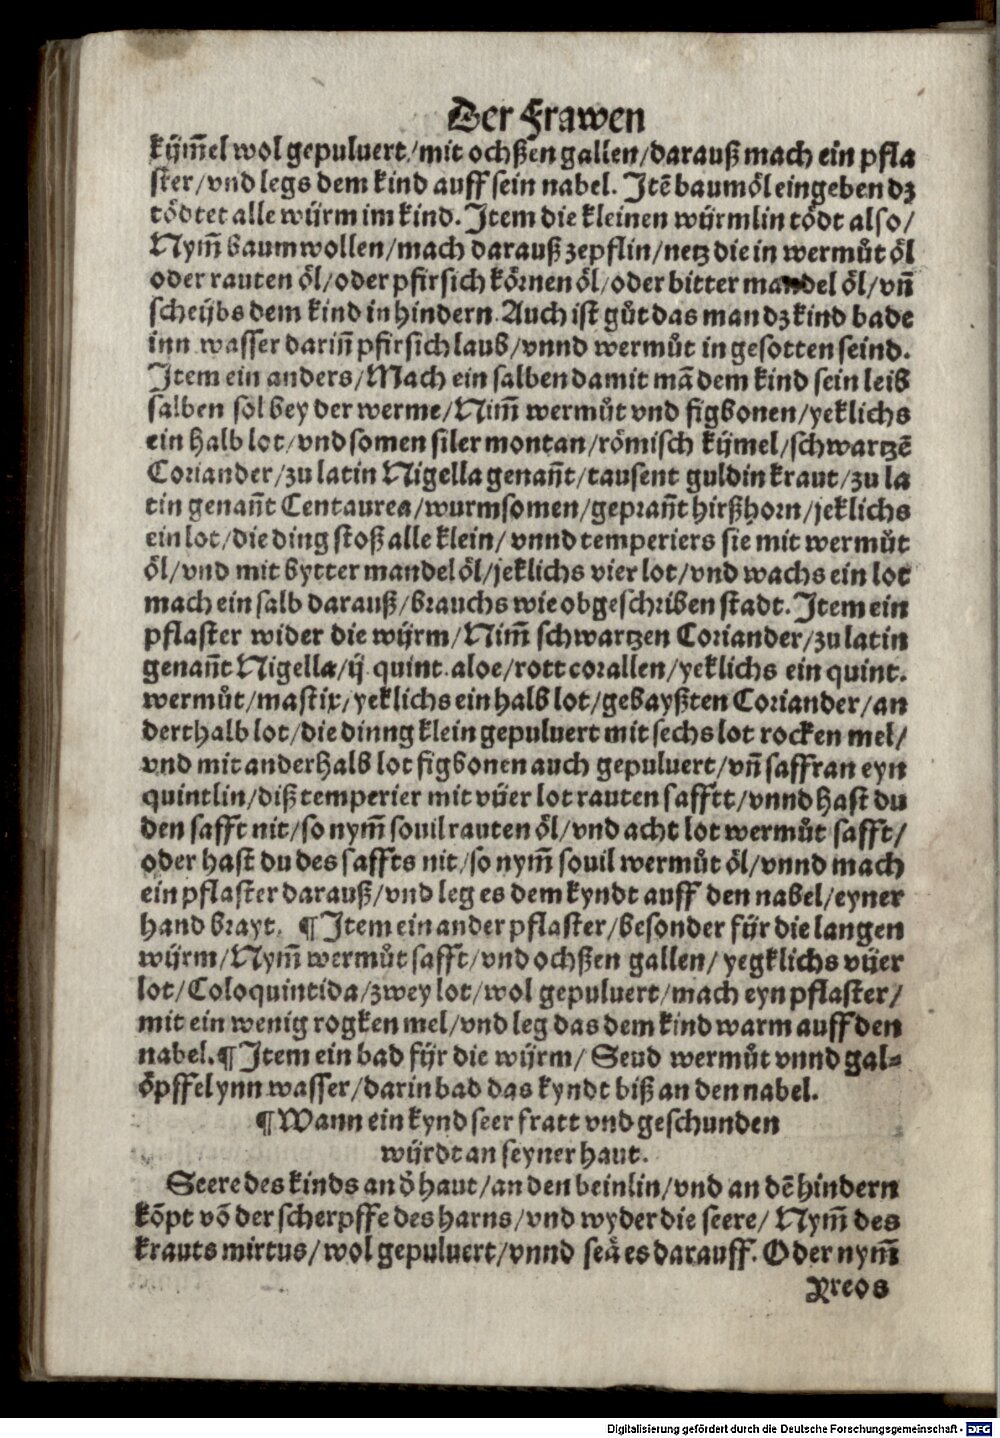 Der Frawen
kijm̄el wol gepuluert/mit ochßen gallen/darauß mach ein pfla
ster/vnd legs dem kind auff sein nabel. Jtē baumöl eingeben dz
tödtet alle würm im kind. Jtem die kleinen würmlin tödt also/
Nym̄ baumwollen/mach darauß zepflin/netz die in wermůt öl
oder rauten öl/oder pfirsich körnen öl/oder bitter mandel öl/vn̄
scheijbs dem kind in hindern. Auch ist gůt das man dz kind bade
inn wasser darin̄ pfirsich laub/vnnd wermůt in gesotten seind.
Jtem ein anders/Mach ein salben damit mā dem kind sein leib
salben sol bey der werme/Nim̄ wermůt vnd figbonen/yeklichs
ein halb lot/vnd somen siler montan/römisch kijmel/schwartzē
Coriander/zu latin Nigella genan̄t/tausent guldin kraut/zu la
tin genan̄t Centaurea/wurmsomen/gepran̄t hirßhorn/jeklichs
ein lot/die ding stoß alle klein/vnnd temperiers sie mit wermůt
öl/vnd mit bytter mandel öl/jeklichs vier lot/vnd wachs ein lot
mach ein salb darauß/brauchs wie obgeschriben stadt. Jtem ein
pflaster wider die wijrm/Nim̄ schwartzen Coriander/zu latin
genan̄t Nigella/ij. quint. aloe/rott corallen/yeklichs ein quint.
wermůt/mastix/yeklichs ein halb lot/gebayßten Coriander/an
derthalb lot/die dinng klein gepuluert mit sechs lot rocken mel/
vnd mit anderhalb lot figbonen auch gepuluert/vn̄ saffran eyn
quintlin/diß temperier mit vijer lot rauten safftt/vnnd hast du
den safft nit/so nym̄ souil rauten öl/vnd acht lot wermůt safft/
oder hast du des saffts nit/so nym̄ souil wermůt öl/vnnd mach
ein pflaster darauß/vnd leg es dem kyndt auff den nabel/eyner
hand brayt. ¶ Jtem ein ander pflaster/besonder für die langen
wijrm/Nym̄ wermůt safft/vnd ochßen gallen/yegklichs vijer
lot/Coloquintida/zwey lot/wol gepuluert/mach eyn pflaster/
mit ein wenig rogken mel/vnd leg das dem kind warm auff den
nabel. ¶ Jtem ein bad fijr die wijrm/Seud wermůt vnnd gal=
öpffel ynn wasser/darin bad das kyndt biß an den nabel.
¶ Wann ein kynd seer fratt vnd geschunden
wijrdt an seyner haut.
Seere des kinds an d̄ haut/an den beinlin/vnd an dē hindern
kōpt vō der scherpffe des harns/vnd wyder die seere/Nym̄ des
krauts mirtus/wol gepuluert/vnnd seä es darauff. Oder nym̄
Yreos
Digitalisierung gefördert durch die Deutsche Forschungsgemeinschaft - DFG